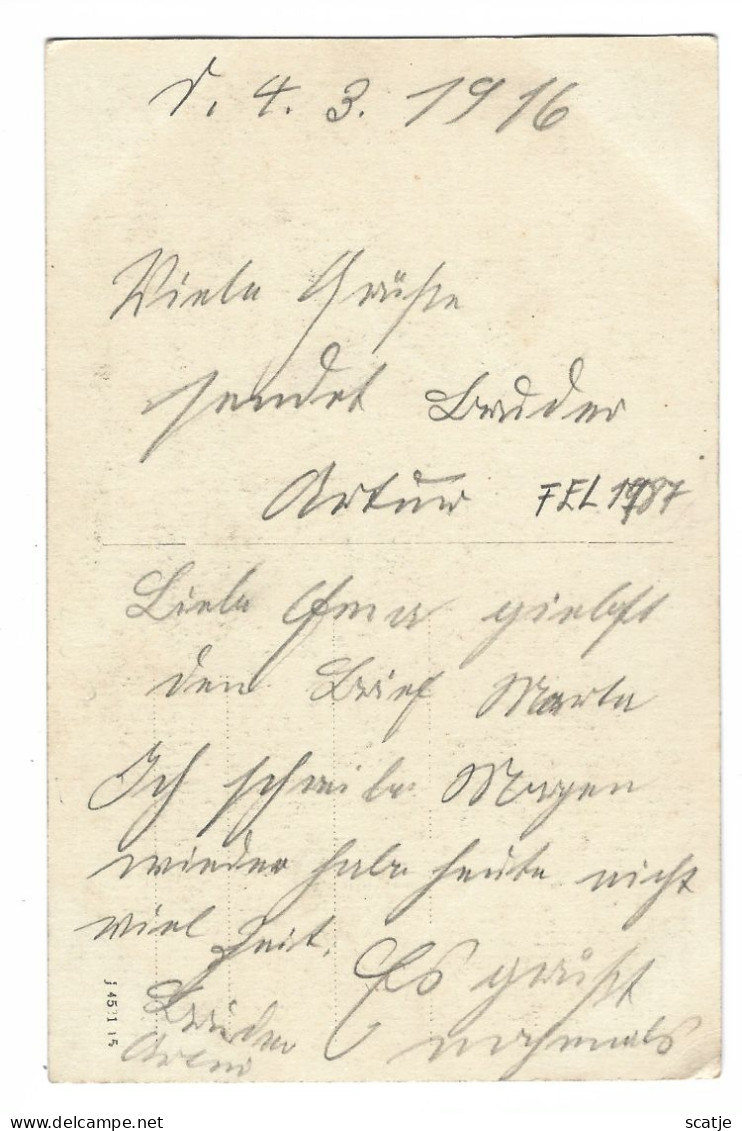 d. 4. 3. 1916
Viele Grüße
sendet Bruder
Artur FEL 1987
Liebe Ema giebst
den Brief Marta
Ich schreibe Morgen
wieder habe heute nicht
viel Zeit. Es grüßt
nochmals
Bruder
Artur
J 4521 15
scatje